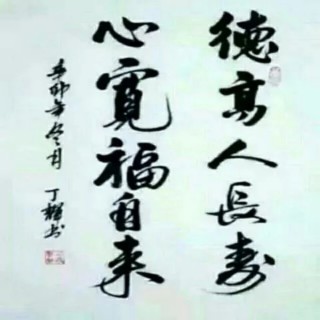 德高人長壽
心寬福自来
辛卯年冬月
丁輝书